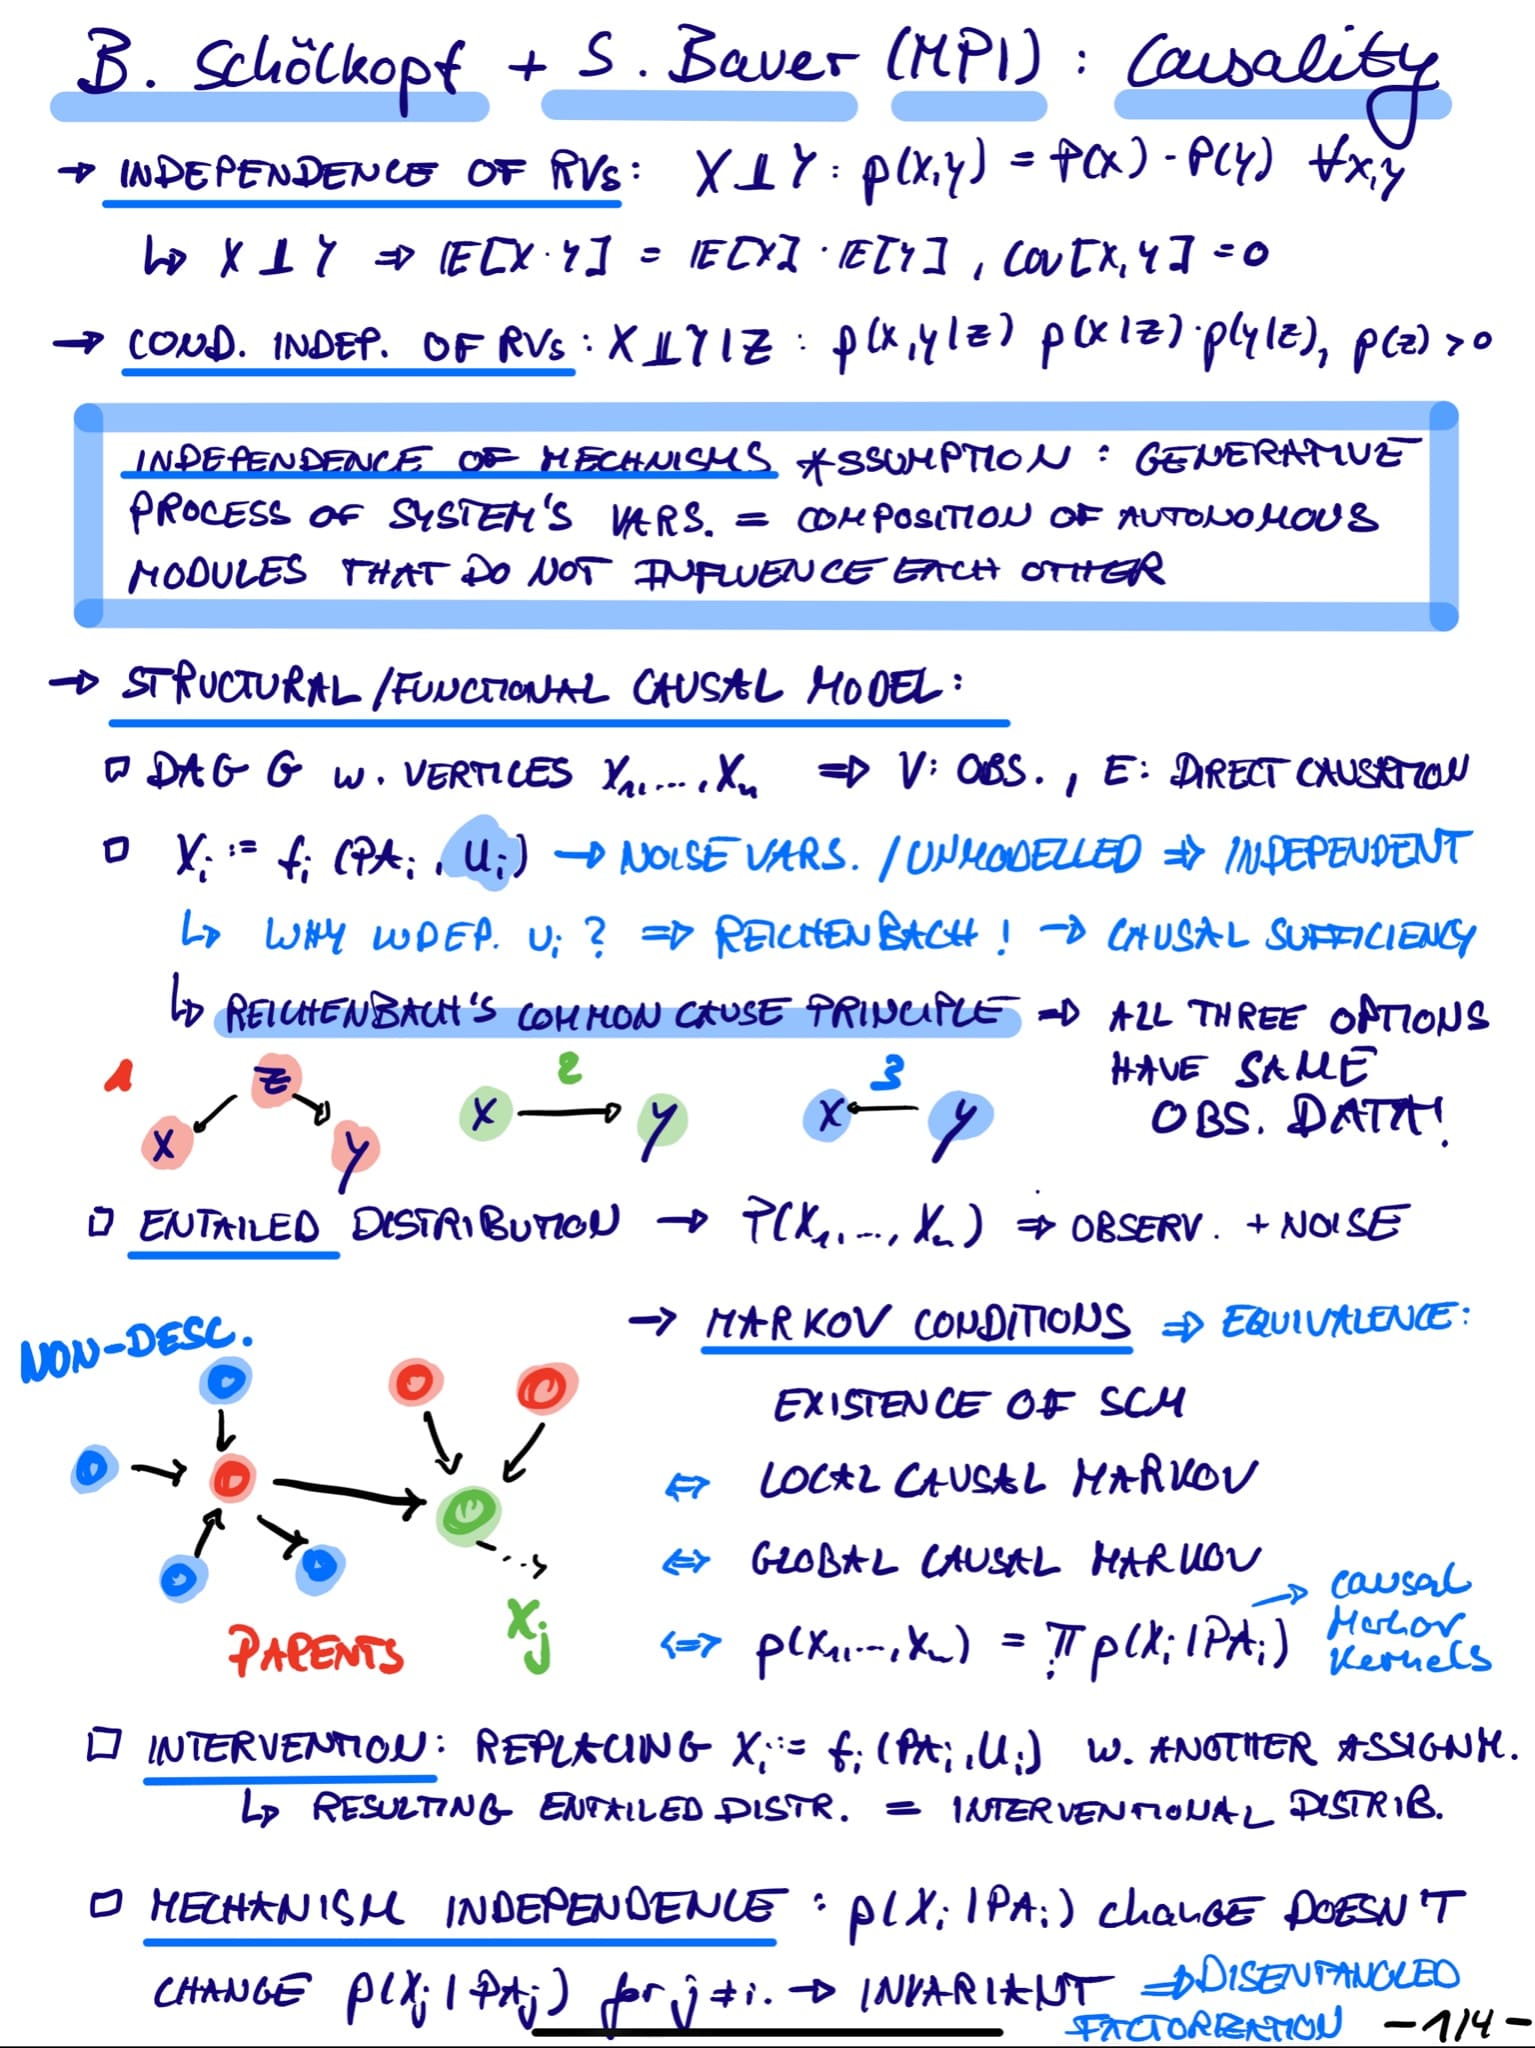 B. Schölkopf + S. Bauer (MPI) : Causality
→ INDEPENDENCE OF RVs: X⫫Y: p(x,y) = P(x) · P(y) ∀x,y
↳ X⫫Y ⇒ 𝔼[X·Y] = 𝔼[X] · 𝔼[Y], COV[X,Y] = 0
→ COND. INDEP. OF RVs: X⫫Y|Z : p(x,y|z) p(x|z)·p(y|z), p(z) > 0
INDEPENDENCE OF MECHNISMS ASSUMPTION : GENERATIVE
PROCESS OF SYSTEM'S VARS. = COMPOSITION OF AUTONOMOUS
MODULES THAT DO NOT INFLUENCE EACH OTHER
→ STRUCTURAL/FUNCTIONAL CAUSAL MODEL:
□ DAG G w. VERTICES X₁,...,Xₙ ⇒ V: OBS., E: DIRECT CAUSATION
□ Xᵢ := fᵢ (PAᵢ, Uᵢ) → NOISE VARS. / UNMODELLED ⇒ INDEPENDENT
↳ WHY INDEP. Uᵢ? ⇒ REICHENBACH! → CAUSAL SUFFICIENCY
↳ REICHENBACH'S COMMON CAUSE PRINCIPLE ⇒ ALL THREE OPTIONS
HAVE SAME
OBS. DATA!
1 2 3
Z
X Y X → Y X ← Y
□ ENTAILED DISTRIBUTION → P(X₁,...,Xₙ) ⇒ OBSERV. + NOISE
→ MARKOV CONDITIONS ⇒ EQUIVALENCE:
NON-DESC.
EXISTENCE OF SCM
⇔ LOCAL CAUSAL MARKOV
⇔ GLOBAL CAUSAL MARKOV
⇔ p(x₁,...,xₙ) = ∏ᵢ p(Xᵢ|PAᵢ)
→ causal
Markov
Kernels
Xⱼ
PARENTS
□ INTERVENTION: REPLACING Xᵢ := fᵢ (PAᵢ, Uᵢ) w. ANOTHER ASSIGNM.
↳ RESULTING ENTAILED DISTR. = INTERVENTIONAL DISTRIB.
□ MECHANISM INDEPENDENCE : p(Xᵢ|PAᵢ) change DOESN'T
CHANGE p(Xⱼ|PAⱼ) for j≠i. → INVARIANT ⇒ DISENTANGLED
FACTORIZATION
-1/4-